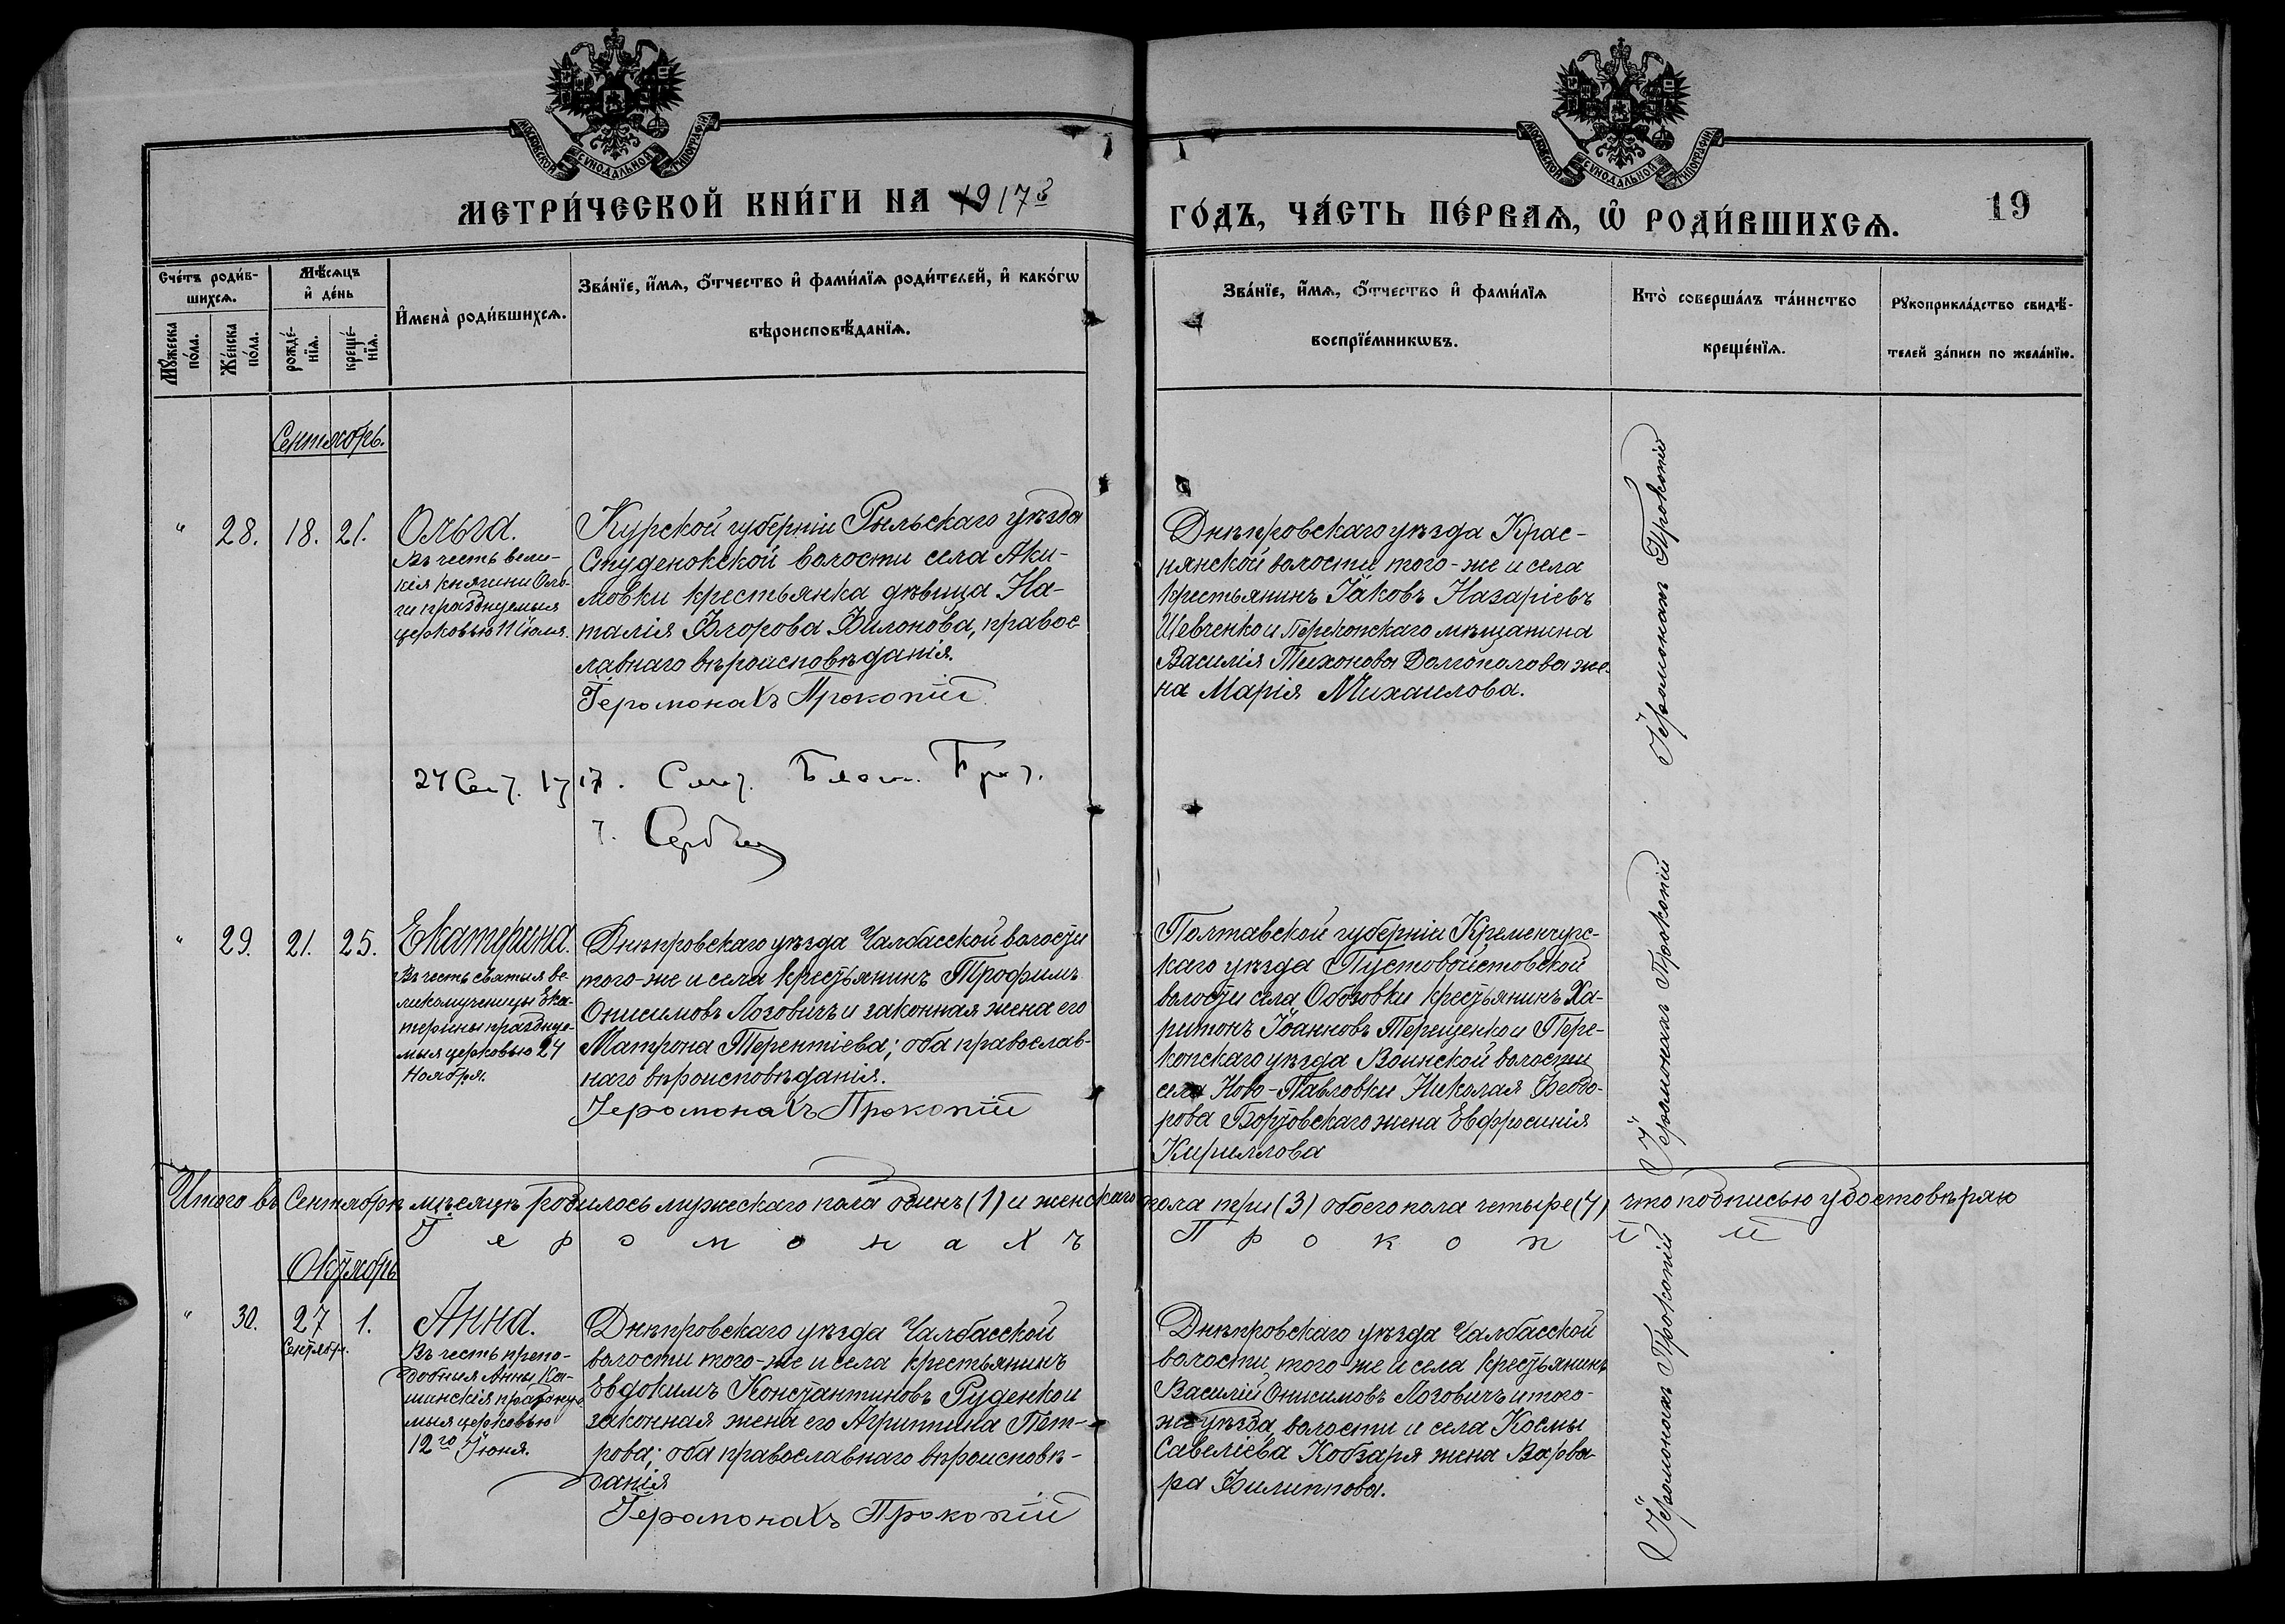 МОСКОВСКОЙ СѴНОДАЛЬНОЙ ТИПОГРАФІИ
МОСКОВСКОЙ СѴНОДАЛЬНОЙ ТИПОГРАФІИ
МЕТРИ́ЧЕСКОЙ КНИ́ГИ НА 1917й
ГО́ДЪ, ЧА́СТЬ ПЕ́РВАѦ, Ѡ҆ РОДИ́ВШИХСѦ.
19
Сче́тъ роди́в-
шихсѧ.
Мꙋ́жеска по́ла.
Же́нска по́ла.
Мѣ́сѧцъ
и҆ де́нь
рожде́-
нїѧ.
креще́-
нїѧ.
И҆мена̀ роди́вшихсѧ.
Зва́нїе, и҆́мѧ, ѻ҆́тчество и҆ фами́лїѧ роди́телей, и҆ како́гѡ
вѣроисповѣ́данїѧ.
Зва́нїе, и҆́мѧ, ѻ҆́тчество и҆ фами́лїѧ
воспрїе́мникѡвъ.
Кто̀ соверша́лъ та́инство
креще́нїѧ.
Рꙋкоприкла́дство свидѣ́-
телей за́писи по жела́нїю.
Сентябрь.
" 28. 18. 21.
Ольга.
Въ честь вели-
кія княгини Оль-
ги празднуемыя
церковью 11 Іюля.
Курской губерніи Рыльскаго уѣзда
Студенокской волости села Аки-
мовки крестьянка дѣвица На-
талія Егорова Филонова, правос
лавнаго вѣроисповѣданія.
Іеромонахъ Прокопій
Днѣпровскаго уѣзда Крас-
нянской волости того-же и села
крестьянинъ Іаковъ Назаріевъ
Шевченко и Перекопскаго мѣщанина
Василія Тихонова Долгополова же-
на Марія Михаилова.
Іеромонахъ Прокопій
24 Сент. 1917.
" 29. 21. 25.
Екатерина.
Въ честь святыя ве-
ликомученицы Ека-
терины празднуе-
мыя церковью 24
Ноября.
Днѣпровскаго уѣзда Чалбасской волости
того-же и села крестьянинъ Трофимъ
Онисимовъ Лозовичъ и законная жена его
Матрона Терентіева; оба православ-
наго вѣроисповѣданія.
Іеромонахъ Прокопій
Полтавской губерніи Кременчугс-
каго уѣзда Пустовойтовской
волости села Обозовки крестьянинъ Ха-
ритонъ Іоанновъ Терещенко и Пере-
копскаго уѣзда Воинской волости
села Ново-Павловки Николая Ѳеодо-
рова Бортовскаго жена Евфросинія
Кириллова
Іеромонахъ Прокопій
Итого въ Сентябрѣ мѣсяцѣ родилось мужескаго пола одинъ (1) и женскаго пола три (3) обоего пола четыре (4) что подписью удостовѣряю
Іеромонахъ Прокопій
Октябрь
" 30. 27 1.
Сентябр.
Анна.
Въ честь препо-
добныя Анны Ка-
шинскія празднуе
мыя церковью
12го Іюня.
Днѣпровскаго уѣзда Чалбасской
волости того-же и села крестьянинъ
Евдокимъ Константиновъ Руденко и
законная жена его Агриппина Пет-
рова; оба православнаго вѣроисповѣ-
данія
Іеромонахъ Прокопій
Днѣпровскаго уѣзда Чалбасской
волости того-же и села крестьянинъ
Василій Онисимовъ Лозовичъ и того-
же уѣзда, волости и села Космы
Савеліева Кобзаря жена Варва-
ра Филиппова.
Іеромонахъ Прокопій